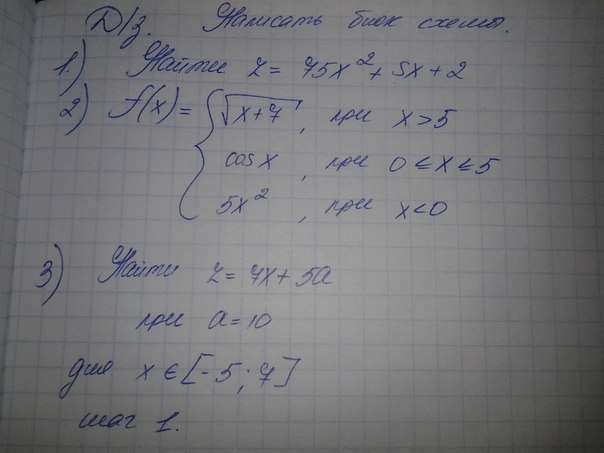 Д/з. Написать блок схемы.
1.) Найти z = 75x² + 5x + 2
2) f(x) = { √(x+7), при x > 5
cos x, при 0 ≤ x ≤ 5
5x², при x < 0
3) Найти z = 7x + 5a
при a = 10
для x ∈ [-5; 7]
шаг 1.